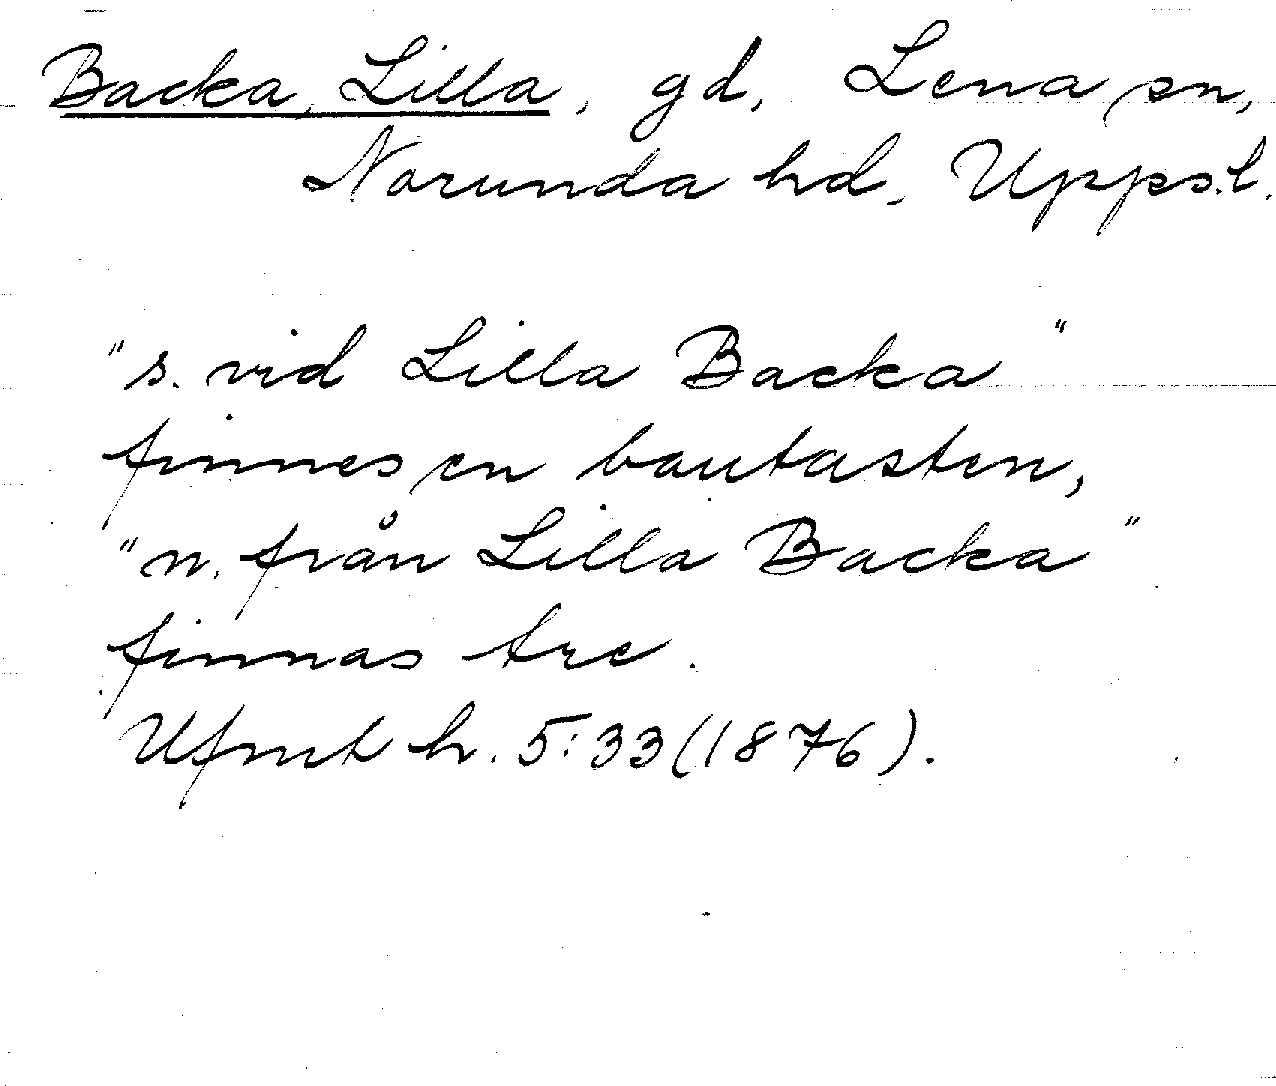 Backa, Lilla, gd, Lena sn,
Norunda hd, Upps.l.
"s. vid Lilla Backa"
finnes en bautasten,
"n. från Lilla Backa"
finnas tre.
Ufmt h. 5:33 (1876).